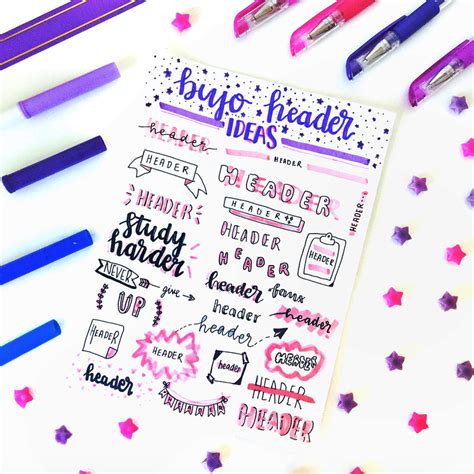 bujo header
IDEAS
header
HEADER
HEADER
HEADER
HEADER
HEADER
HEADER
HEADER
HEADER
HEADER
HEADER
study
harder
NEVER
give
UP
header fans
header
header
header
HEADER
HEADER
HEADER
HEADER
header
HEADER
HEADER
HEADER